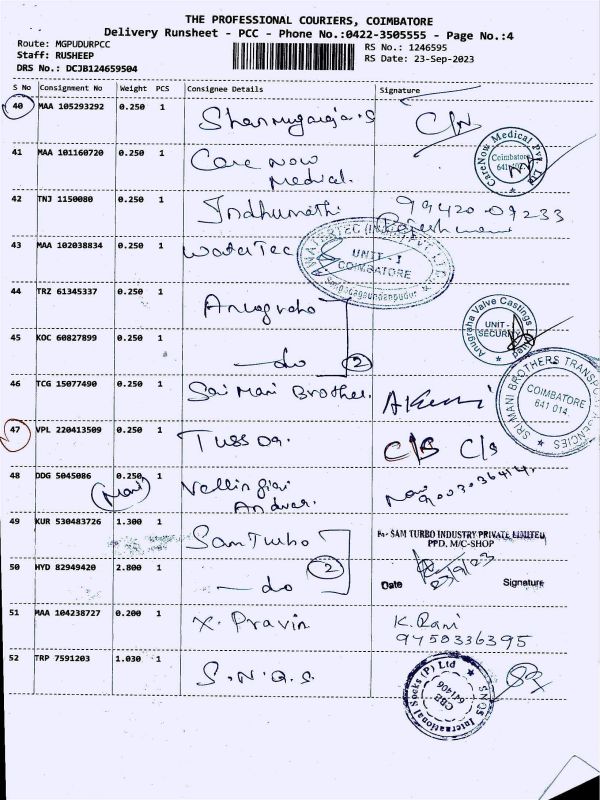 THE PROFESSIONAL COURIERS, COIMBATORE
Delivery Runsheet - PCC - Phone No.:0422-3505555 - Page No.:4
Route: MGPUDURPCC
Staff: RUSHEEP
DRS No.: DCJB124659504
RS No.: 1246595
RS Date: 23-Sep-2023
S No Consignment No Weight PCS Consignee Details Signature
40 MAA 105293292 0.250 1
41 MAA 101160720 0.250 1 Care now
Medical.
CareNow Medical Pvt. Ltd
Coimbatore
42 TNJ 1150080 0.250 1 Indhumathi 99420-09233
43 MAA 102038834 0.250 1 WaterTec
UNIT - I
COIMBATORE
44 TRZ 61345337 0.250 1 Anugraha
Anugraha Valve Castings Limited
UNIT - I
SECURITY
45 KOC 60827899 0.250 1 do 2
46 TCG 15077490 0.250 1 Sai Mani Brother.
SRI MANI BROTHERS TRANSPORT AGENCIES
COIMBATORE
641 014.
47 VPL 220413509 0.250 1 Tussor. C/S C/S
48 DDG 5045086 0.250 1 Vellingiri
Mani
49 KUR 530483726 1.300 1 Sam Turbo
For SAM TURBO INDUSTRY PRIVATE LIMITED
PPD, M/C-SHOP
50 HYD 82949420 2.800 1 do 2
23/9/23
Date Signature
51 MAA 104238727 0.200 1 X. Pravin K. Rani
9450336395
52 TRP 7591203 1.030 1 S.N.Q.S.
SNQS International Socks (P) Ltd
CBE
641406